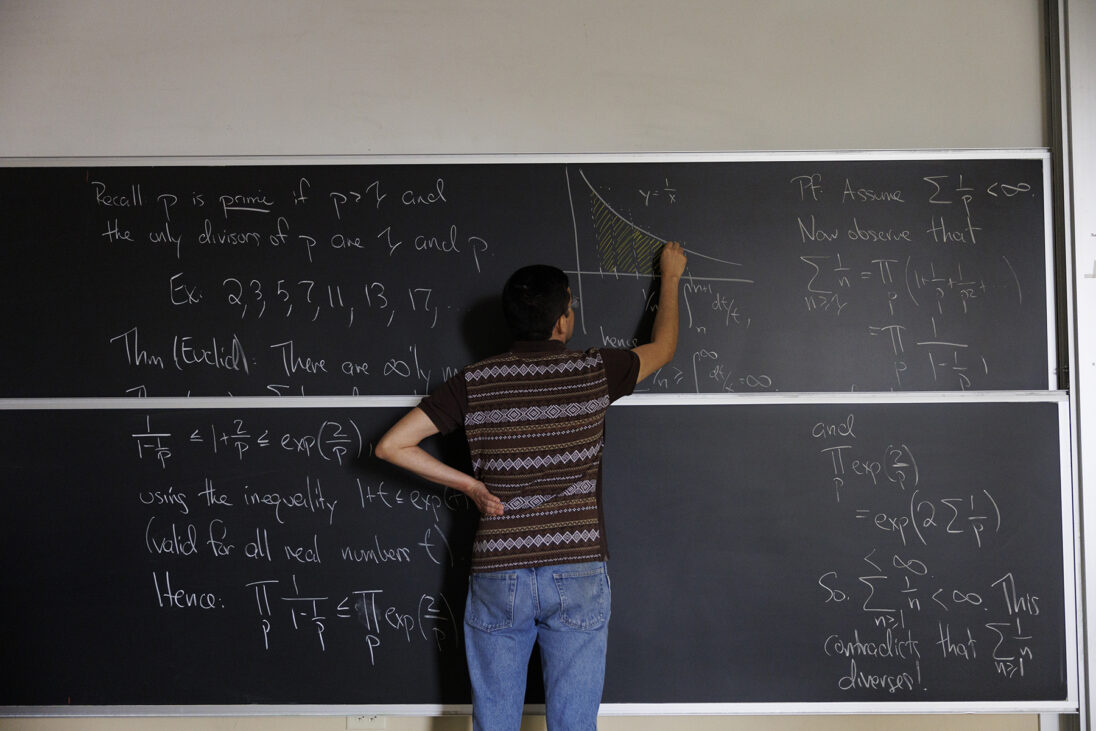 Recall p is prime if p > 1 and
the only divisors of p are 1 and p.
Ex: 2, 3, 5, 7, 11, 13, 17, ...
Thm (Euclid): There are ∞'ly
y = 1/x
1/n ≥ ∫_n^{n+1} dt/t,
hence
1/n ≥ ∫^∞ dt/t = ∞
Pf: Assume Σ 1/p < ∞.
Now observe that
Σ_{n≥1} 1/n = ∏_p (1 + 1/p + 1/p² + ...)
= ∏_p 1/(1 - 1/p),
1/(1 - 1/p) ≤ 1 + 2/p ≤ exp(2/p),
using the inequality 1 + t ≤ exp(
(valid for all real numbers t)
Hence: ∏_p 1/(1 - 1/p) ≤ ∏_p exp(2/p)
and
∏_p exp(2/p)
= exp(2 Σ 1/p)
< ∞.
So, Σ_{n≥1} 1/n < ∞. This
contradicts that Σ_{n≥1} 1/n
diverges!